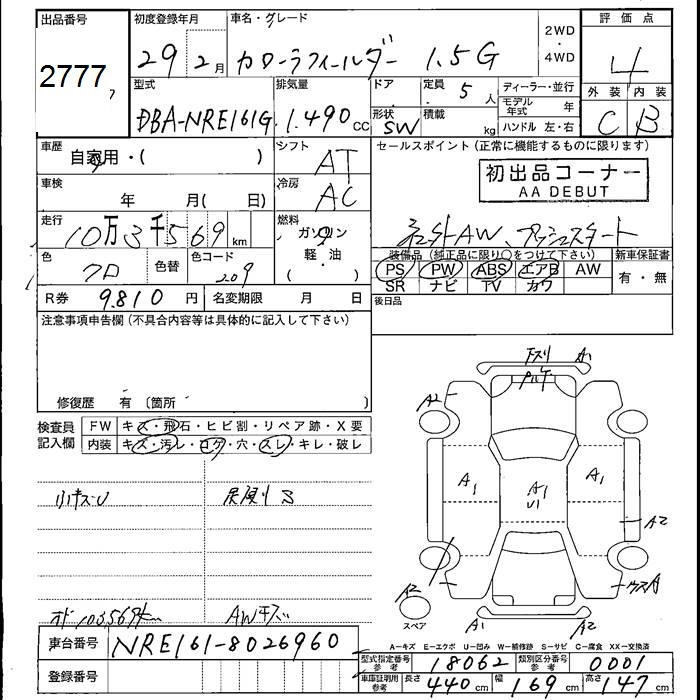 出品番号
2777
7
初度登録年月
29年2月
車名・グレード
カローラフィールダー 1.5G
2WD
・
4WD
評価点
4
外装 内装
C B
型式
DBA-NRE161G
排気量
1.490cc
ドア
形状
SW
定員
5人
積載
kg
ディーラー・並行
モデル年式 年
ハンドル 左・右
車歴
自家用・( )
シフト
AT
車検
年 月( 日)
冷房
AC
走行
10万3千569km
燃料
ガソリン
軽油
( )
色
クロ
色替
色コード
209
R券 9.810円
名変期限 月 日
セールスポイント(正常に機能するものに限ります)
初出品コーナー
AA DEBUT
AW、プッシュスタート
装備品(純正品に限り○をつけて下さい)
PS PW ABS エアB AW
SR ナビ TV カワ
新車保証書
有・無
後日品
注意事項申告欄(不具合内容等は具体的に記入して下さい)
修復歴 有 〔箇所 〕
検査員
記入欄
FW キズ・飛石・ヒビ割・リペア跡・X要
内装 キズ・汚レ・コゲ・穴・スレ・キレ・破レ
小キズU
AWキズ
車台番号 NRE161-8026960
登録番号
A1
A2
A1
A1
U1
A1
A2
A2
スペア
A1
A2
A-キズ E-エクボ U-凹み W-補修跡 S-サビ C-腐食 XX-交換済
型式指定番号
参考
18062
類別区分番号
参考
0001
車庫証明用
参考
長さ 440cm 幅 169cm 高さ 147cm